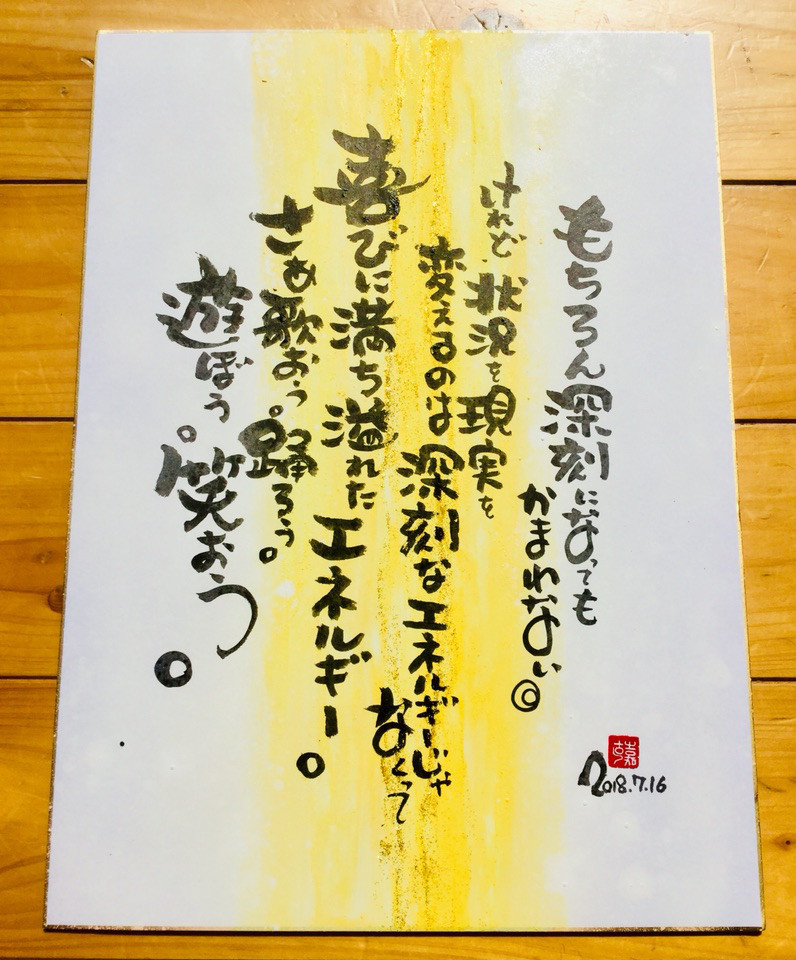 もちろん深刻になっても
かまわない。
けれど状況を現実を
変えるのは深刻なエネルギーじゃ
なくって
喜びに満ち溢れた エネルギー。
さぁ歌おう。踊ろう。
遊ぼう。笑おう。
2018.7.16